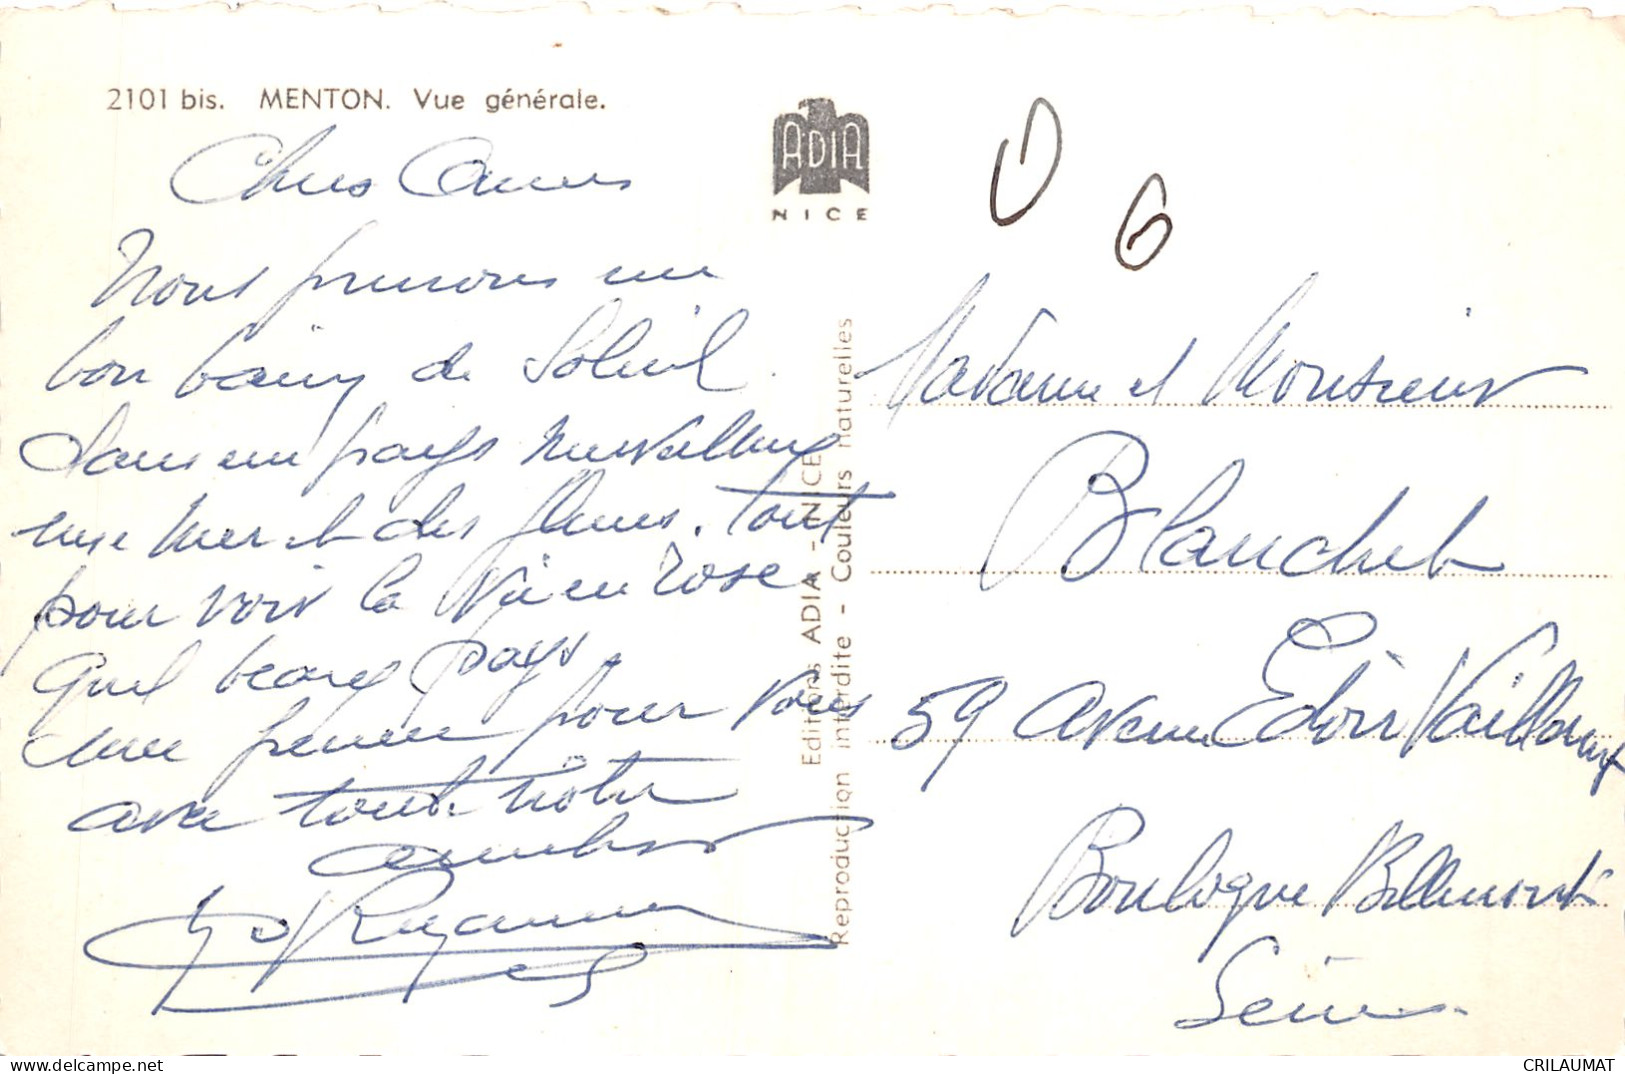 2101 bis. MENTON. Vue générale.
Chers Amis
Nous prenons un
bon bain de Soleil
dans un pays merveilleux
une Mer et des fleurs. tout
pour voir la Vie en rose
Quel beau pays
une pensée pour vous
avec toute notre
amitié
ADIA
NICE
Editions ADIA - NICE
Reproduction interdite - Couleurs naturelles
Madame et Monsieur
Blanchet
59 Avenue Edouard Vaillant
Boulogne Billancourt
Seine
delcampe.net
CRILAUMAT